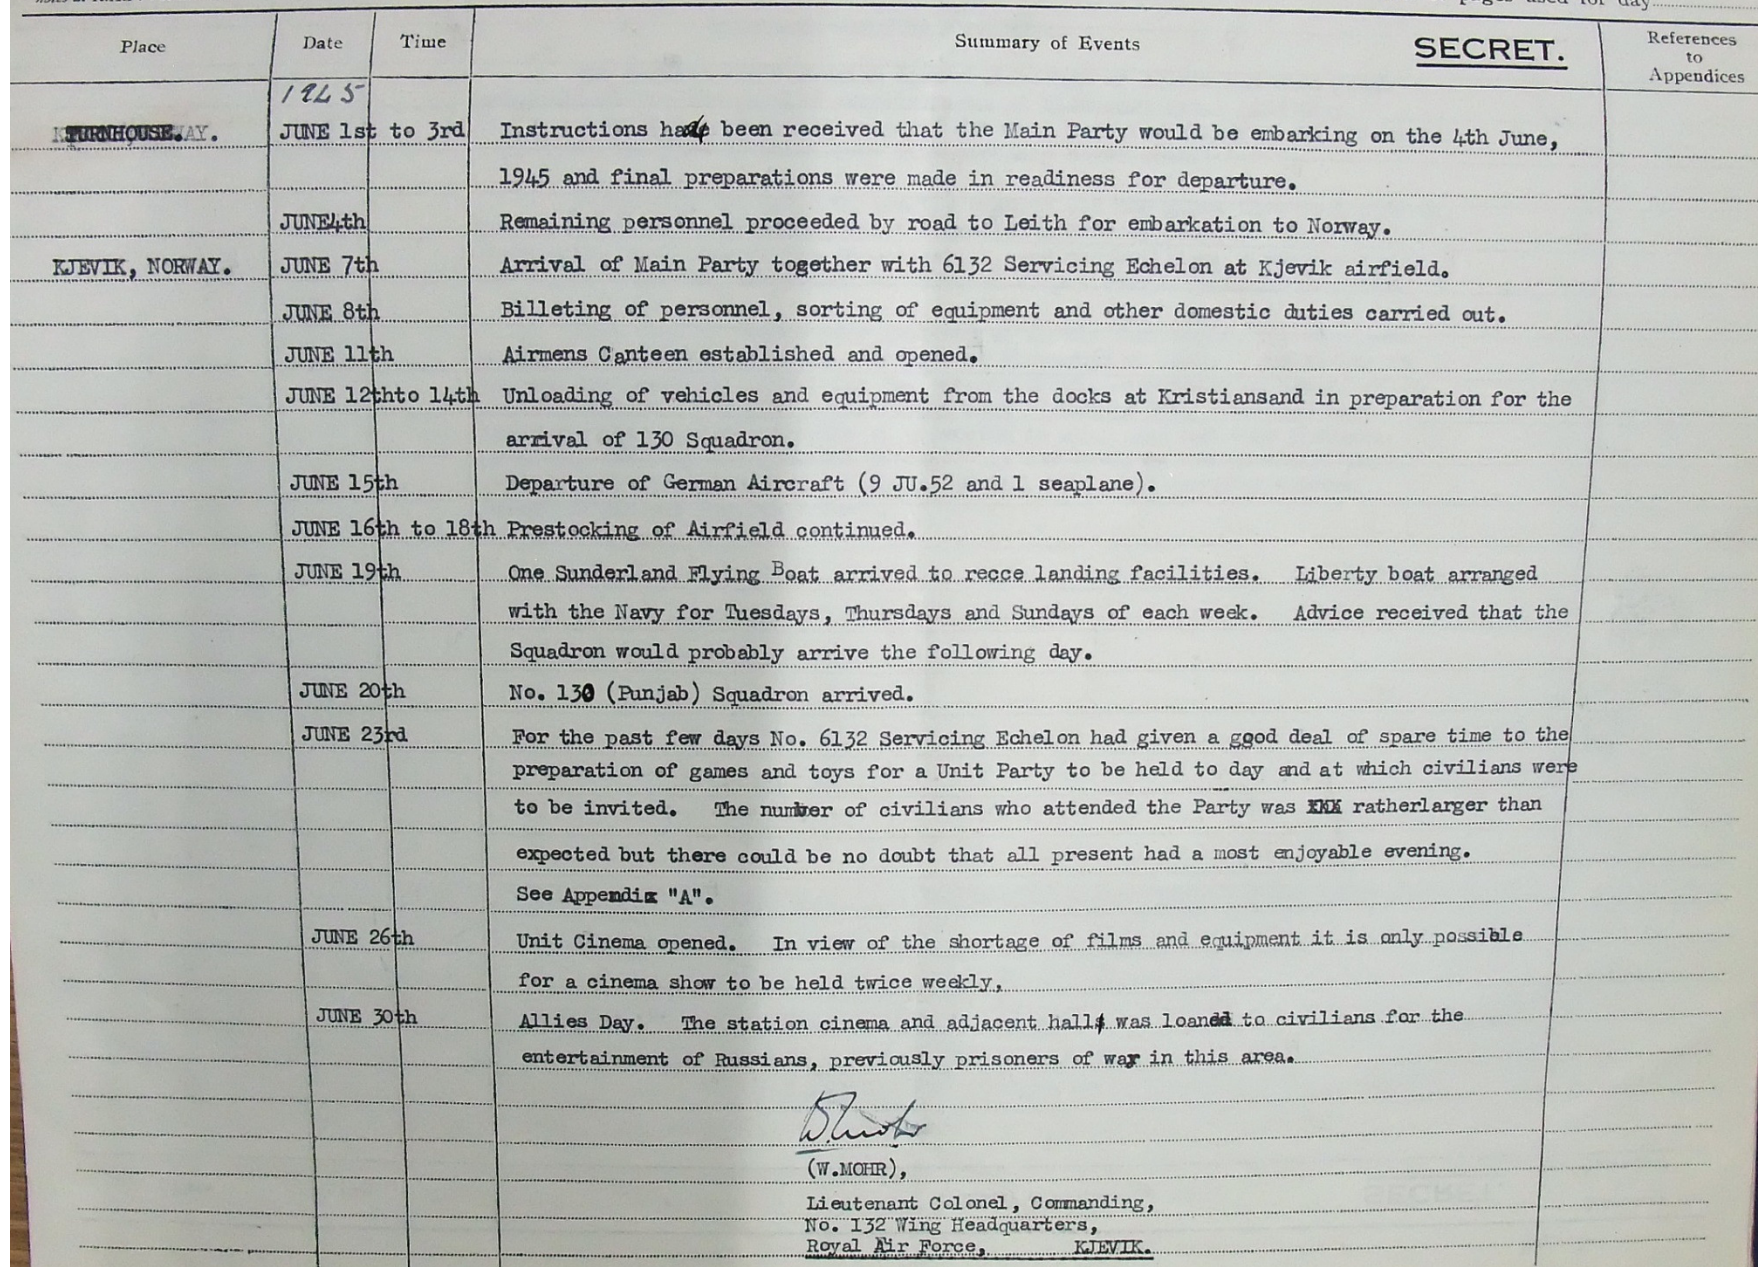 pages used for day
Place Date Time Summary of Events SECRET. References to Appendices
1945
TURNHOUSE. JUNE 1st to 3rd Instructions have been received that the Main Party would be embarking on the 4th June,
1945 and final preparations were made in readiness for departure.
JUNE4th Remaining personnel proceeded by road to Leith for embarkation to Norway.
KJEVIK, NORWAY. JUNE 7th Arrival of Main Party together with 6132 Servicing Echelon at Kjevik airfield.
JUNE 8th Billeting of personnel, sorting of equipment and other domestic duties carried out.
JUNE 11th Airmens Canteen established and opened.
JUNE 12thto 14th Unloading of vehicles and equipment from the docks at Kristiansand in preparation for the
arrival of 130 Squadron.
JUNE 15th Departure of German Aircraft (9 JU.52 and 1 seaplane).
JUNE 16th to 18th Prestocking of Airfield continued.
JUNE 19th One Sunderland Flying Boat arrived to recce landing facilities. Liberty boat arranged
with the Navy for Tuesdays, Thursdays and Sundays of each week. Advice received that the
Squadron would probably arrive the following day.
JUNE 20th No. 130 (Punjab) Squadron arrived.
JUNE 23rd For the past few days No. 6132 Servicing Echelon had given a good deal of spare time to the
preparation of games and toys for a Unit Party to be held to day and at which civilians were
to be invited. The number of civilians who attended the Party was XXX ratherlarger than
expected but there could be no doubt that all present had a most enjoyable evening.
See Appendix "A".
JUNE 26th Unit Cinema opened. In view of the shortage of films and equipment it is only possible
for a cinema show to be held twice weekly,
JUNE 30th Allies Day. The station cinema and adjacent hall was loaned to civilians for the
entertainment of Russians, previously prisoners of war in this area.
(W.MOHR),
Lieutenant Colonel, Commanding,
No. 132 Wing Headquarters,
Royal Air Force, KJEVIK.